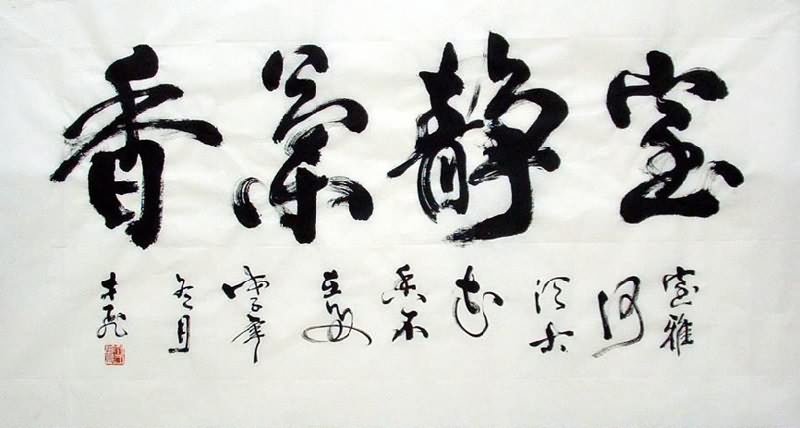 室静蘭香
室雅
何
須大
花
香不
在多
戊子年
冬月